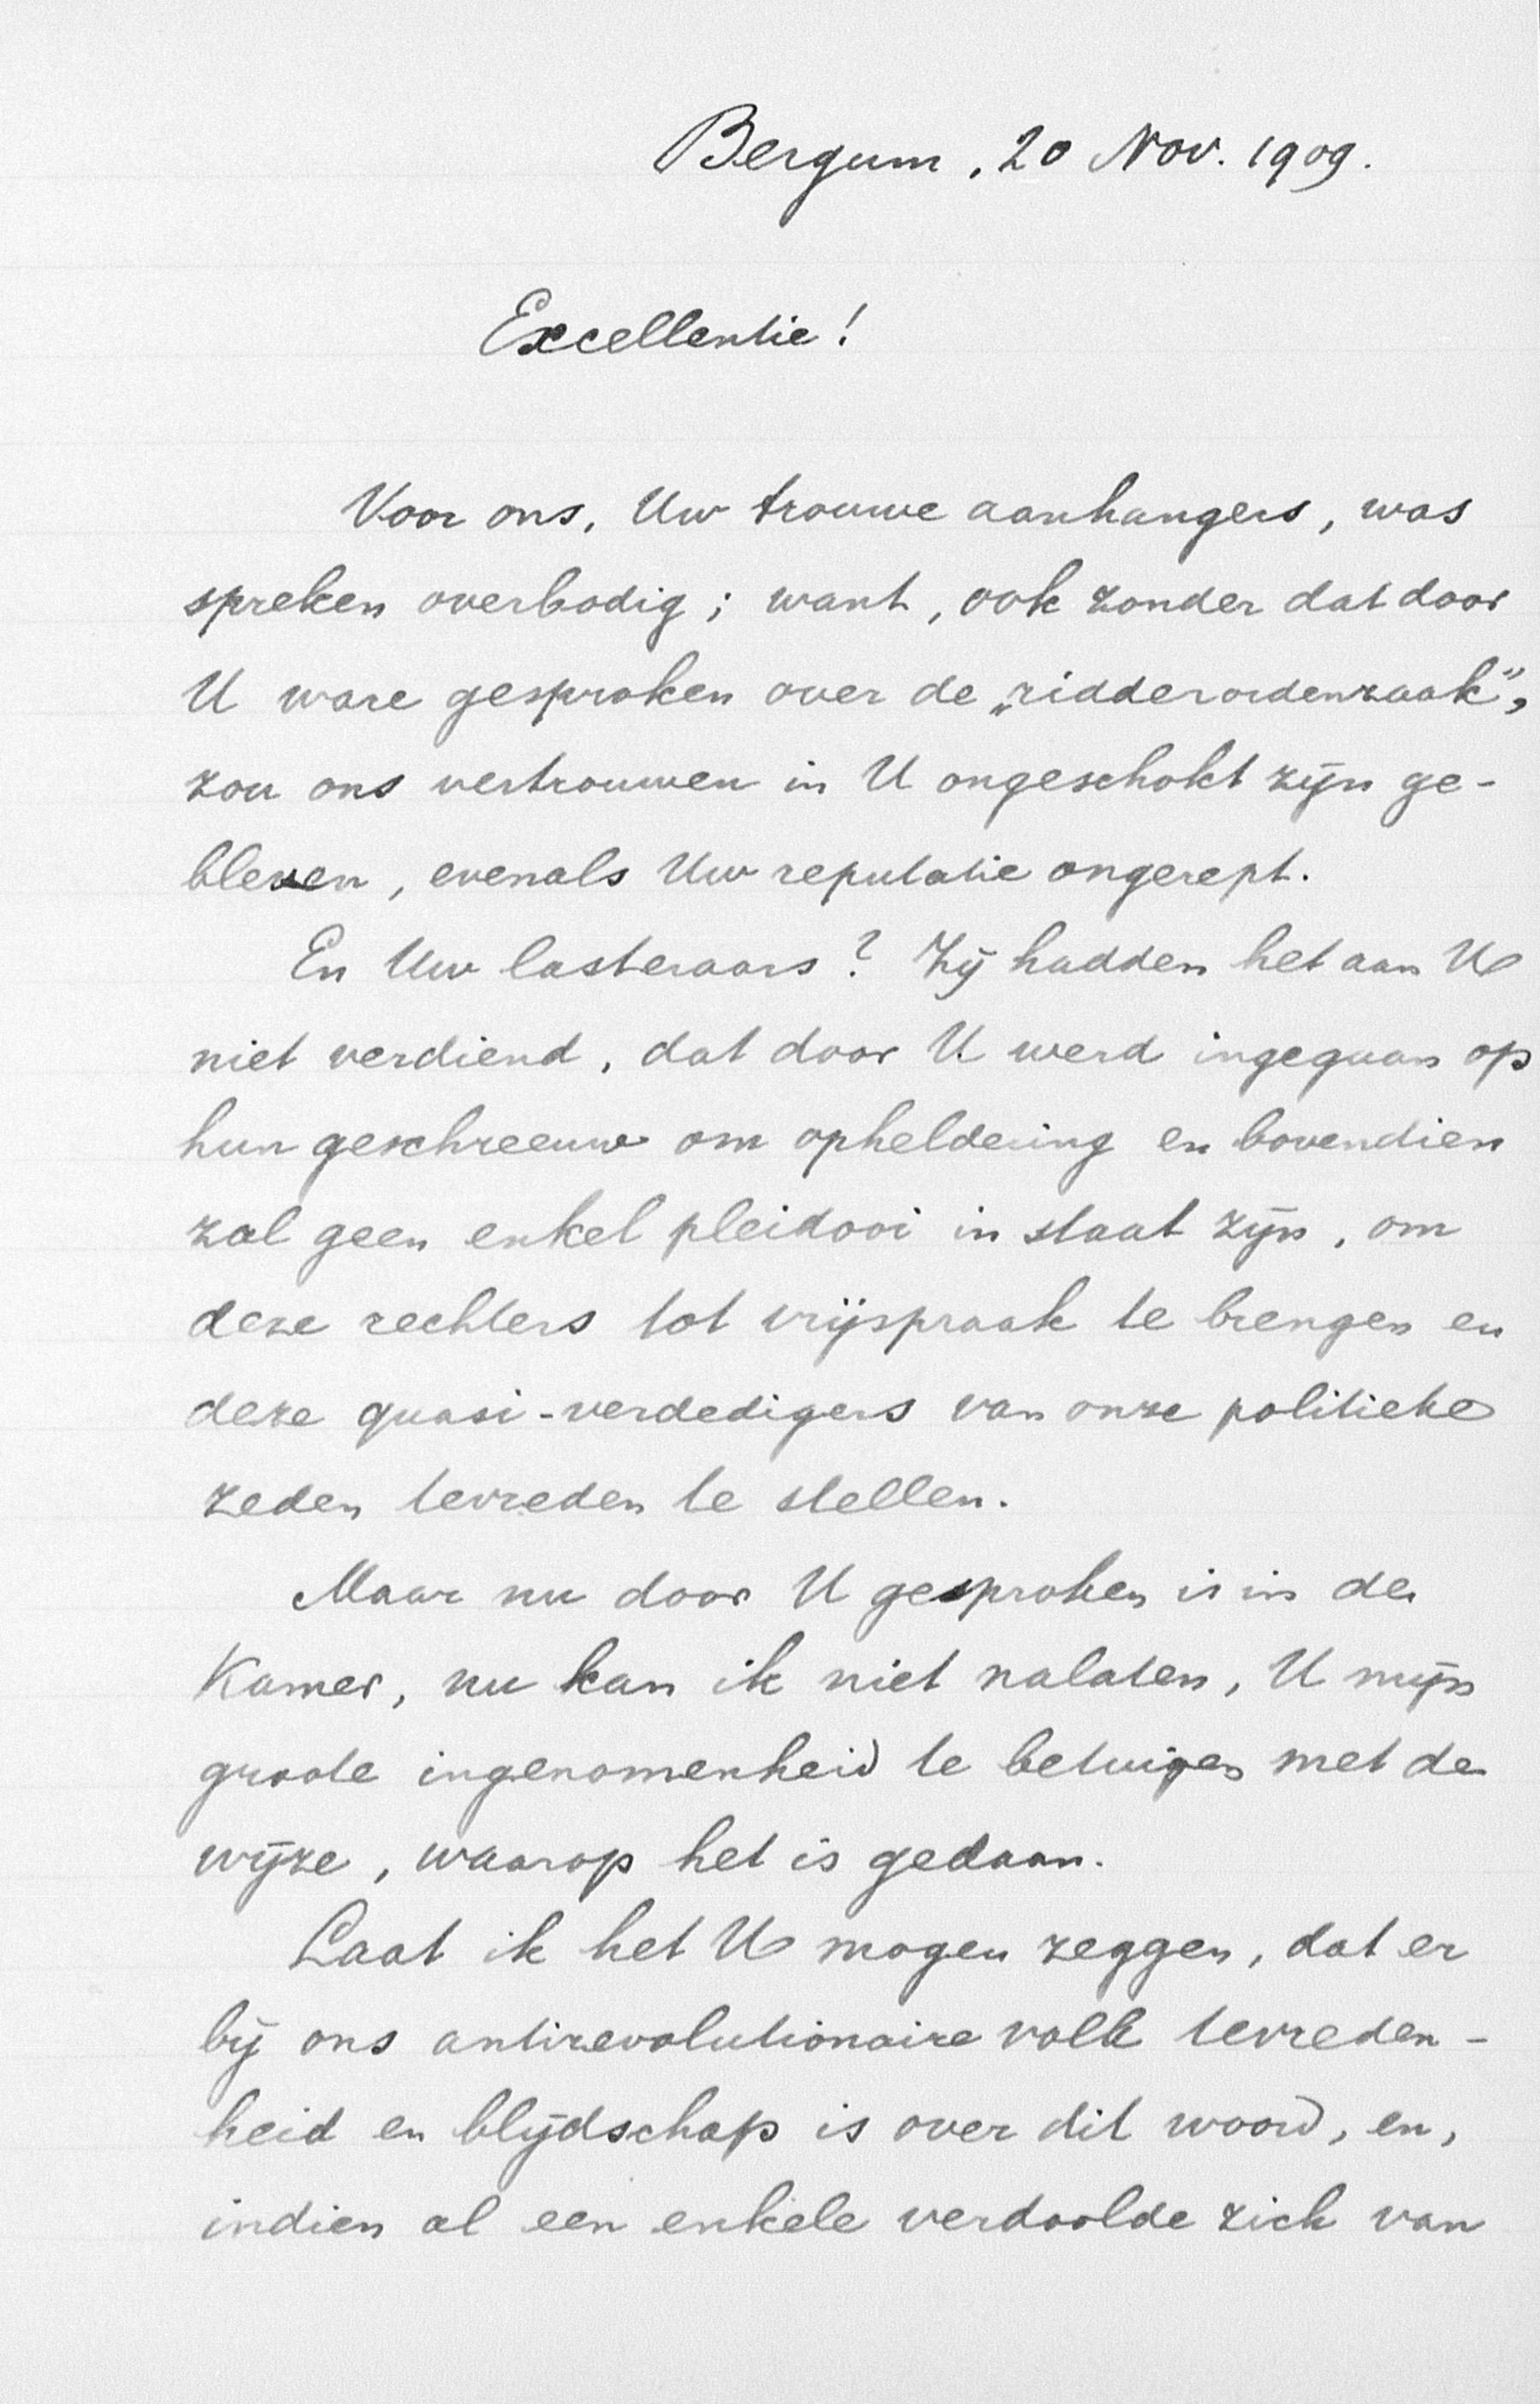 Bergum, 20 Nov. 1909.
Excellentie!
Voor ons, Uw trouwe aanhangers, was
spreken overbodig; want, ook zonder dat door
U ware gesproken over de „ridderordenzaak",
zou ons vertrouwen in U ongeschokt zijn ge-
bleven, evenals Uw reputatie ongerept.
En Uw lasteraars? Zij hadden het aan U
niet verdiend, dat door U werd ingegaan op
hun geschreeuw om opheldering en bovendien
zal geen enkel pleidooi in staat zijn, om
deze rechters tot vrijspraak te brengen en
deze quasi-verdedigers van onze politieke
zeden tevreden te stellen.
Maar nu door U gesproken is in de
Kamer, nu kan ik niet nalaten, U mijn
groote ingenomenheid te betuigen met de
wijze, waarop het is gedaan.
Laat ik het U mogen zeggen, dat er
bij ons antirevolutionaire volk tevreden-
heid en blijdschap is over dit woord, en,
indien al een enkele verdoolde zich van